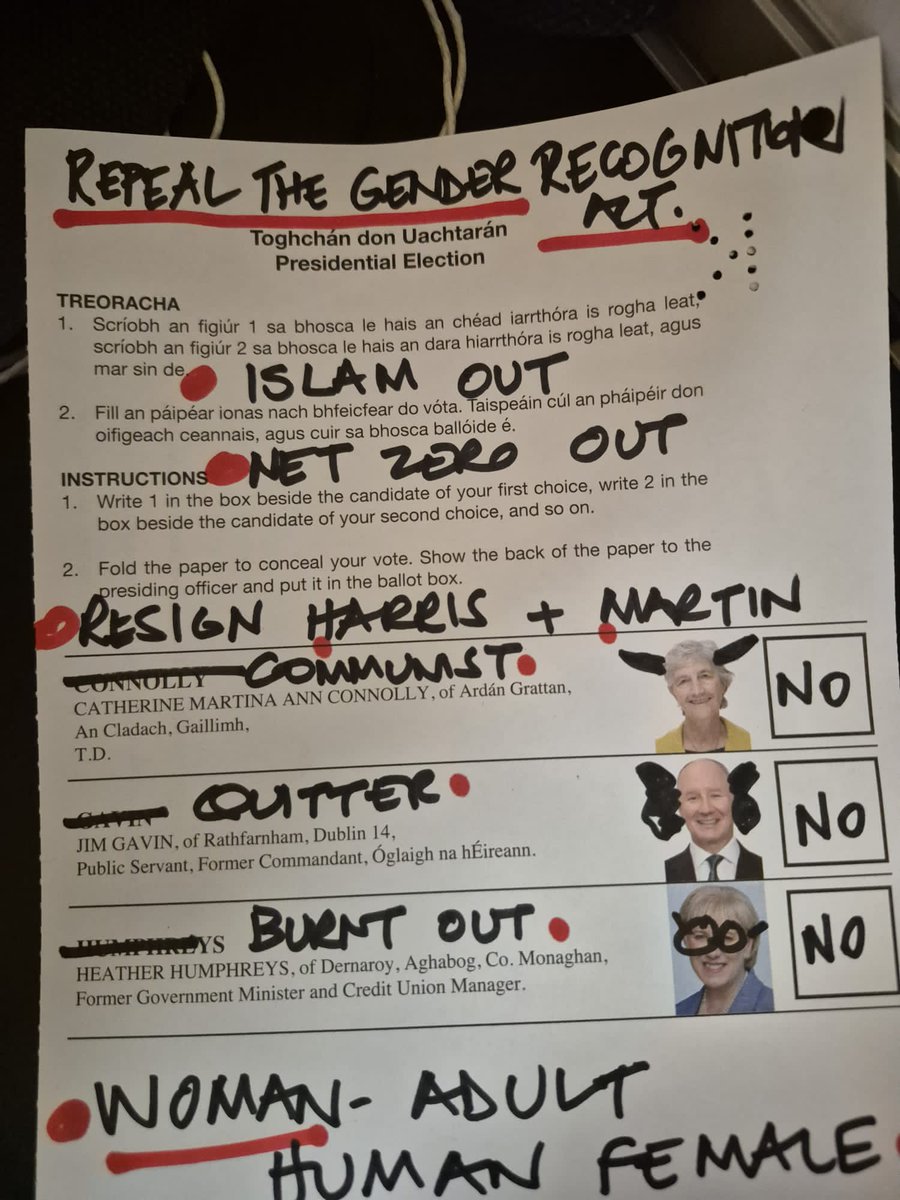 REPEAL THE GENDER RECOGNITION
ACT.
Toghchán don Uachtarán
Presidential Election
TREORACHA
1. Scríobh an figiúr 1 sa bhosca le hais an chéad iarrthóra is rogha leat,
scríobh an figiúr 2 sa bhosca le hais an dara hiarrthóra is rogha leat, agus
mar sin de.
ISLAM OUT
2. Fill an páipéar ionas nach bhfeicfear do vóta. Taispeáin cúl an pháipéir don
oifigeach ceannais, agus cuir sa bhosca ballóide é.
NET ZERO OUT
INSTRUCTIONS
1. Write 1 in the box beside the candidate of your first choice, write 2 in the
box beside the candidate of your second choice, and so on.
2. Fold the paper to conceal your vote. Show the back of the paper to the
presiding officer and put it in the ballot box.
RESIGN HARRIS + MARTIN
CONNOLLY COMMUNIST.
CATHERINE MARTINA ANN CONNOLLY, of Ardán Grattan,
An Cladach, Gaillimh,
T.D.
NO
GAVIN QUITTER
JIM GAVIN, of Rathfarnham, Dublin 14,
Public Servant, Former Commandant, Óglaigh na hÉireann.
NO
HUMPHREYS BURNT OUT
HEATHER HUMPHREYS, of Dernaroy, Aghabog, Co. Monaghan,
Former Government Minister and Credit Union Manager.
NO
WOMAN - ADULT
HUMAN FEMALE